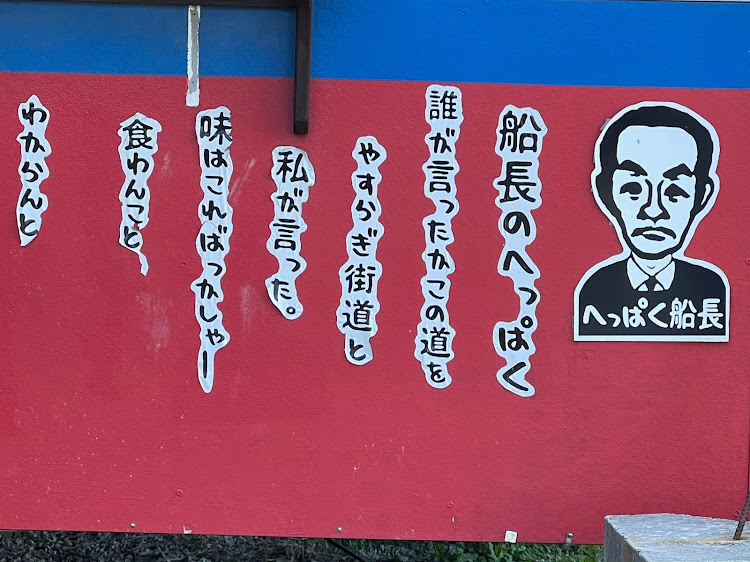 へっぱく船長
船長のへっぱく
誰が言ったかこの道を
やすらぎ街道と
私が言った。
味はこればっかしゃー
食わんこと、
わからんと